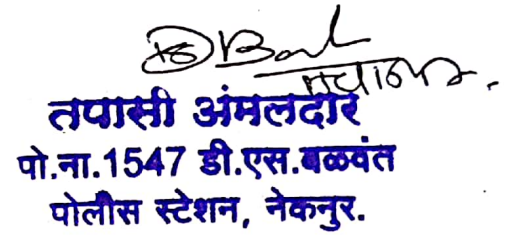 तपासी अंमलदार
पो.ना.1547 डी.एस.बळवंत
पोलीस स्टेशन, नेकनुर.